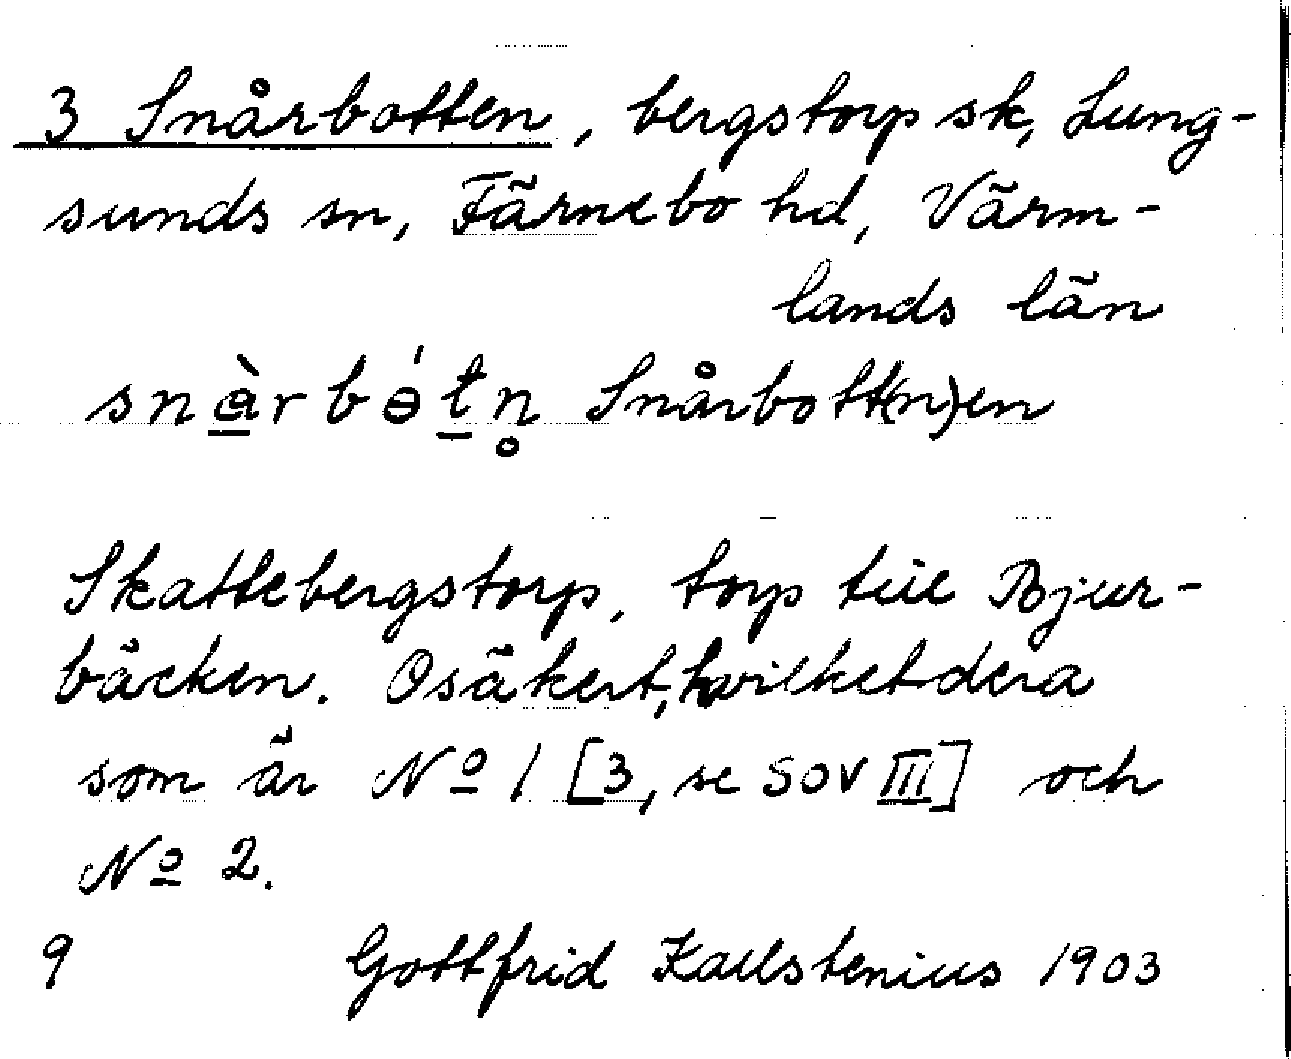 3 Snårbotten, bergstorp sk, Lung-
sunds sn, Färnebo hd, Värm-
lands län
snàrbɵ́tn̥ Snårbott(n)en
Skattebergstorp, torp till Bjur-
bäcken. Osäkert, hvilketdera
som är Nº 1 [3, se SOV III] och
Nº 2.
9 Gottfrid Kallstenius 1903